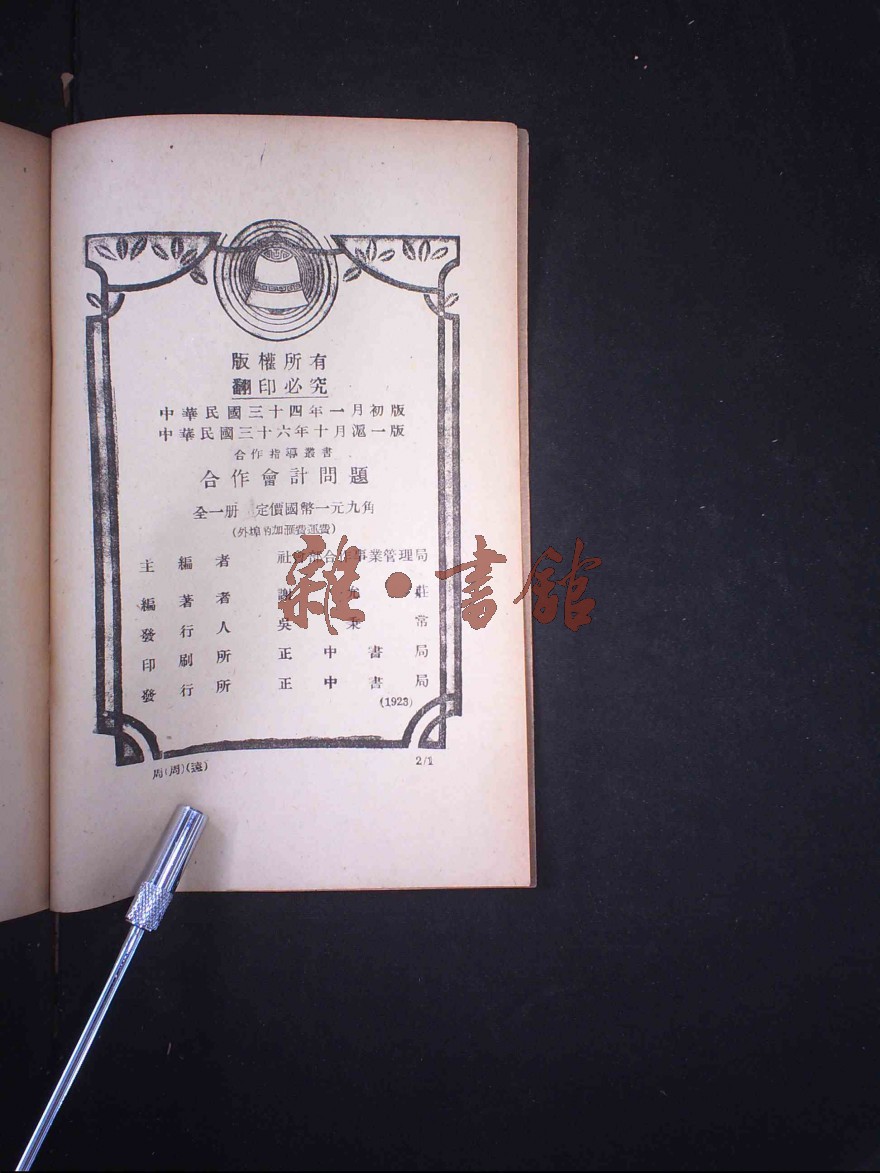 版權所有
翻印必究
中華民國三十四年一月初版
中華民國三十六年十月滬一版
合作指導叢書
合作會計問題
全一册 定價國幣一元九角
(外埠酌加滙費運費)
主編者 社會部合作事業管理局
編著者 謝 莊
發行人 吳秉常
印刷所 正中書局
發行所 正中書局
(1923)
周(周)(遠) 2/1
雜·書館